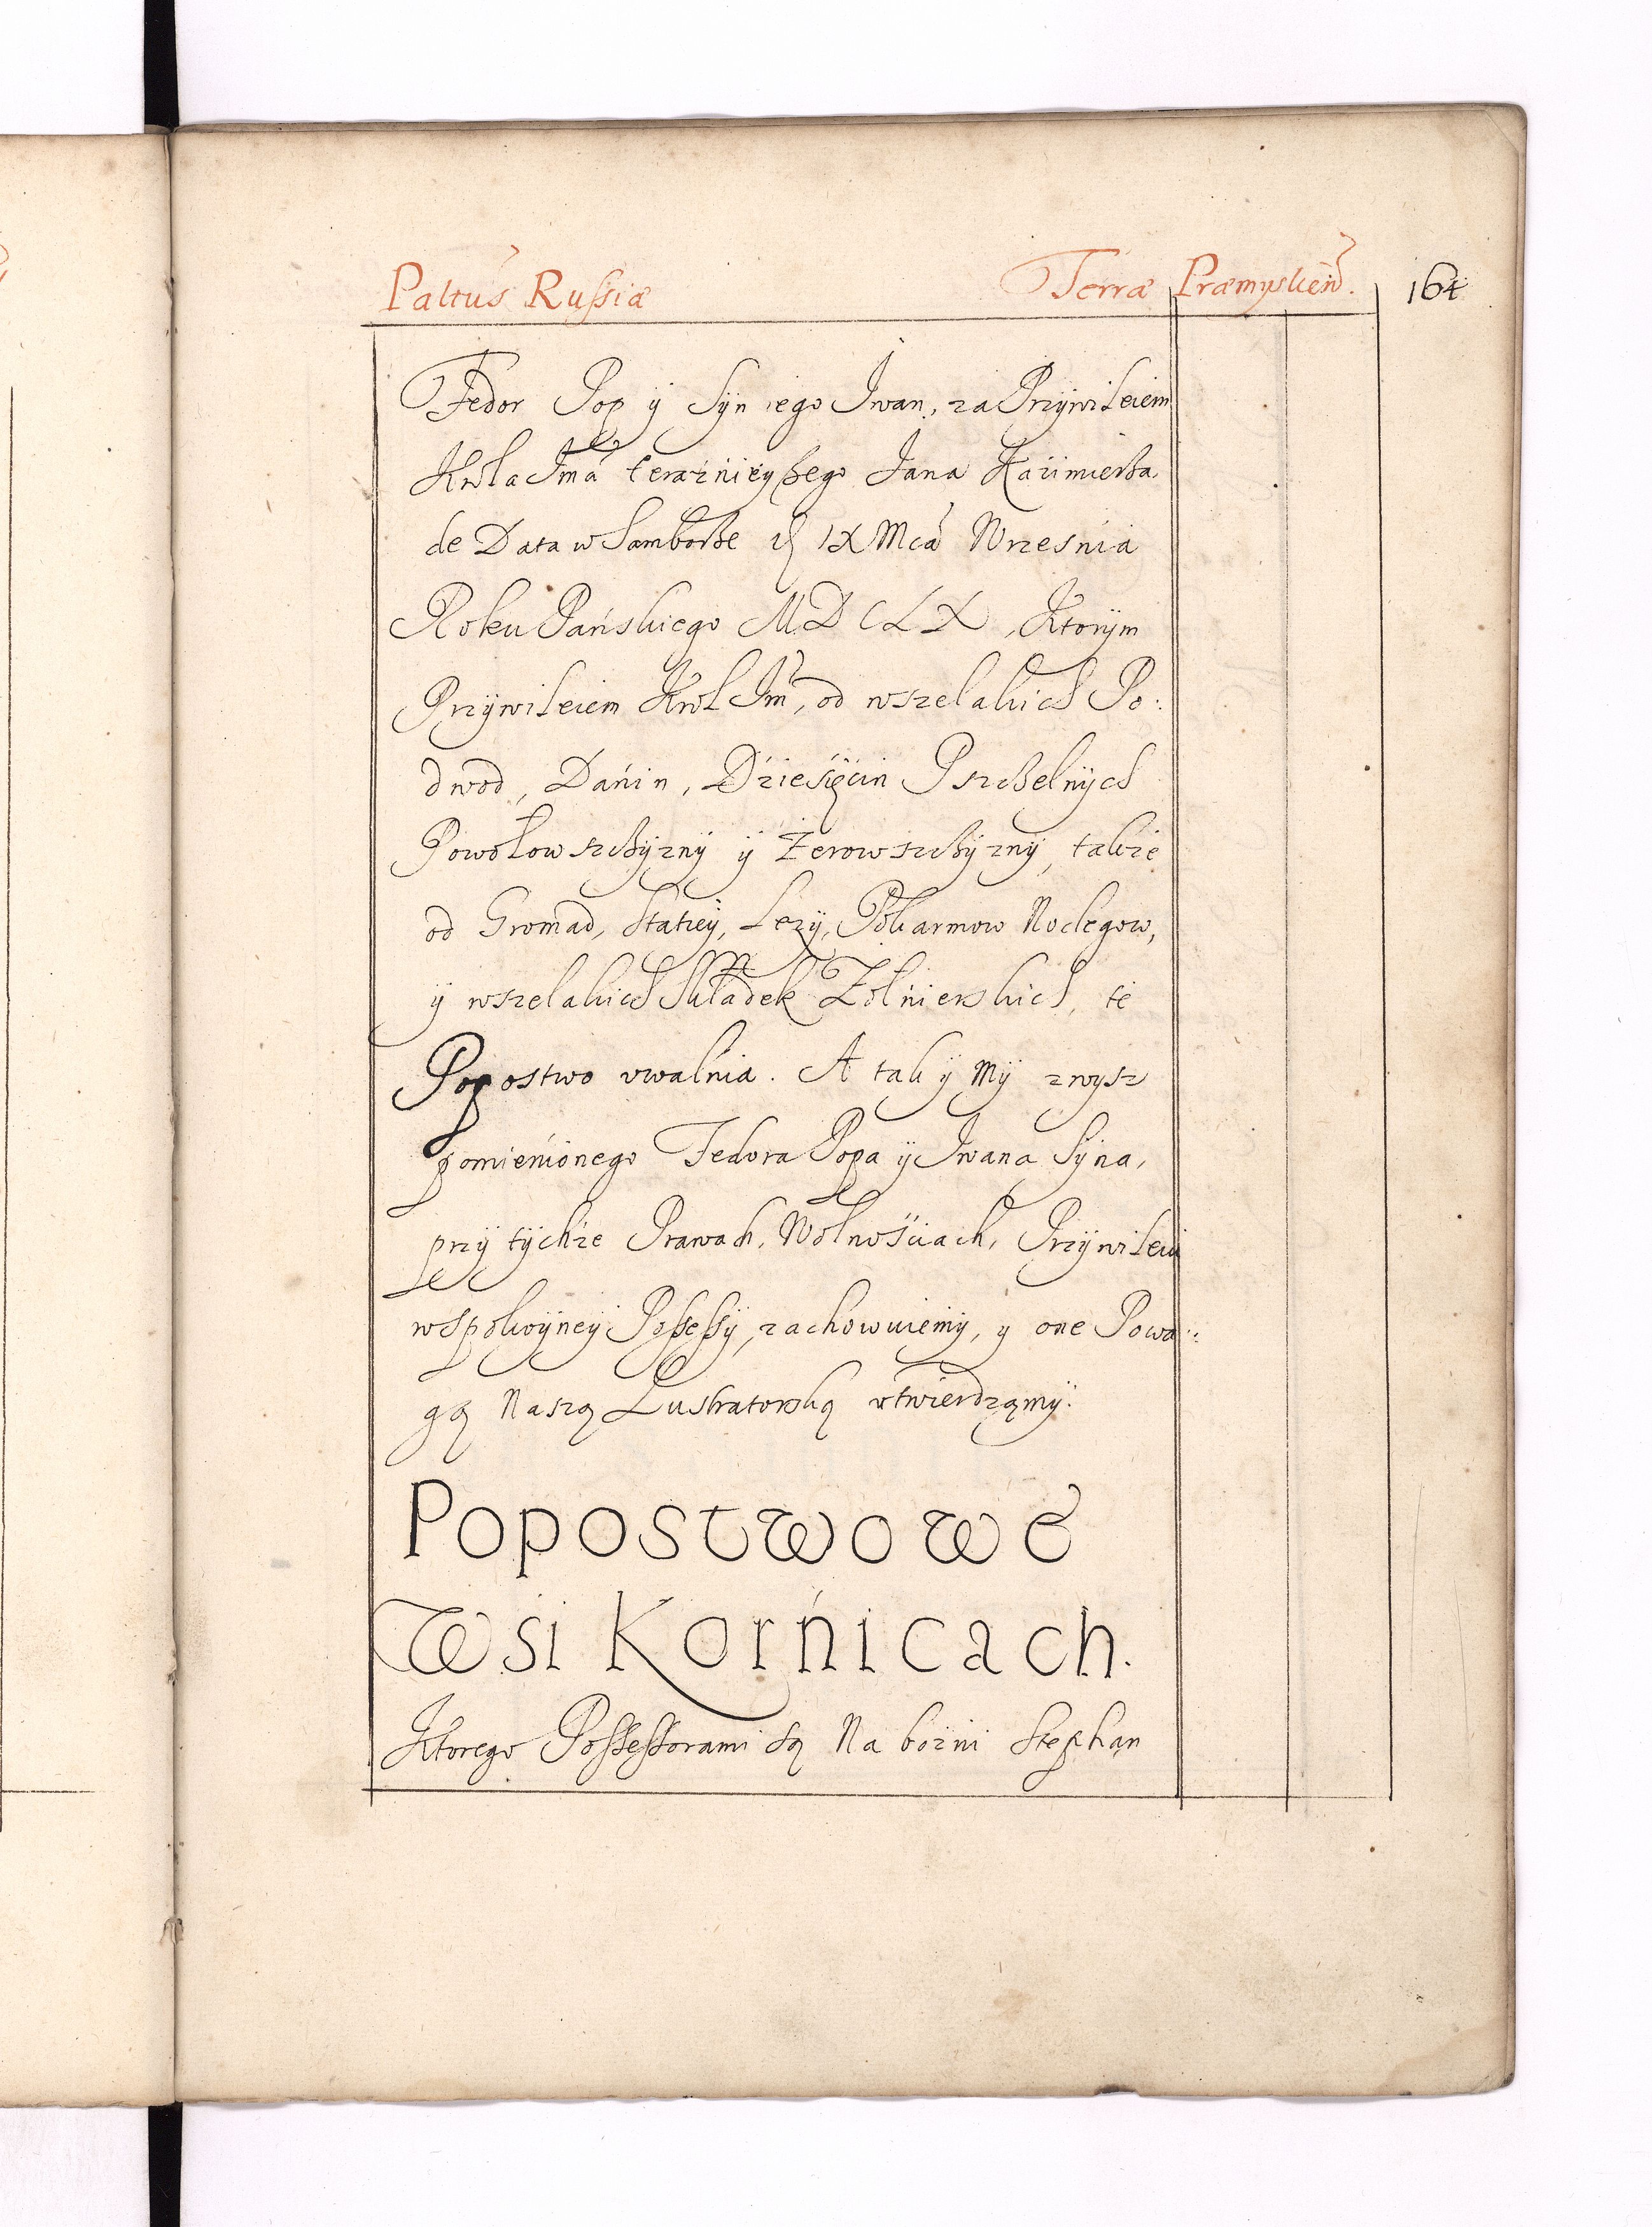 Paltus Russiæ Terræ Præmysliens. 164
Fedor Pop ÿ Syn iego Jwan, za Przÿwileiem
Krola Jmᶜⁱ terażnieyszego Jana Kaźimierza,
de Data w Samborze d IX Mca Wrzesńia
Roku Pańskiego MDCLX, Ktorÿm
Przÿwileiem Krol Jm, od wszelakich Po:
dwod, Dańin, Dźieśięćin Pszczelnÿch
Powołowszczÿznÿ ÿ Żerowszczÿznÿ, także
od Gromad, Stacÿey, Leżÿ, Pokarmow Noclegow,
ÿ wszelakich Składek Żołnierskich, te
Popostwo vwalńia. A tak ÿ Mÿ zwysz
pomieńionego Fedora Popa ÿ Jwana Sÿna,
przÿ tÿchże Prawach, Wolnośćiach, Przÿwileiu
w spokoÿneÿ Possessÿ, zachowuiemÿ, y one Powa:
gą Naszą Lustratorską vtwierdzamÿ.
Popostwo we
Wsi Korńicach.
Ktorego Possessorami są Na bożni Stephan